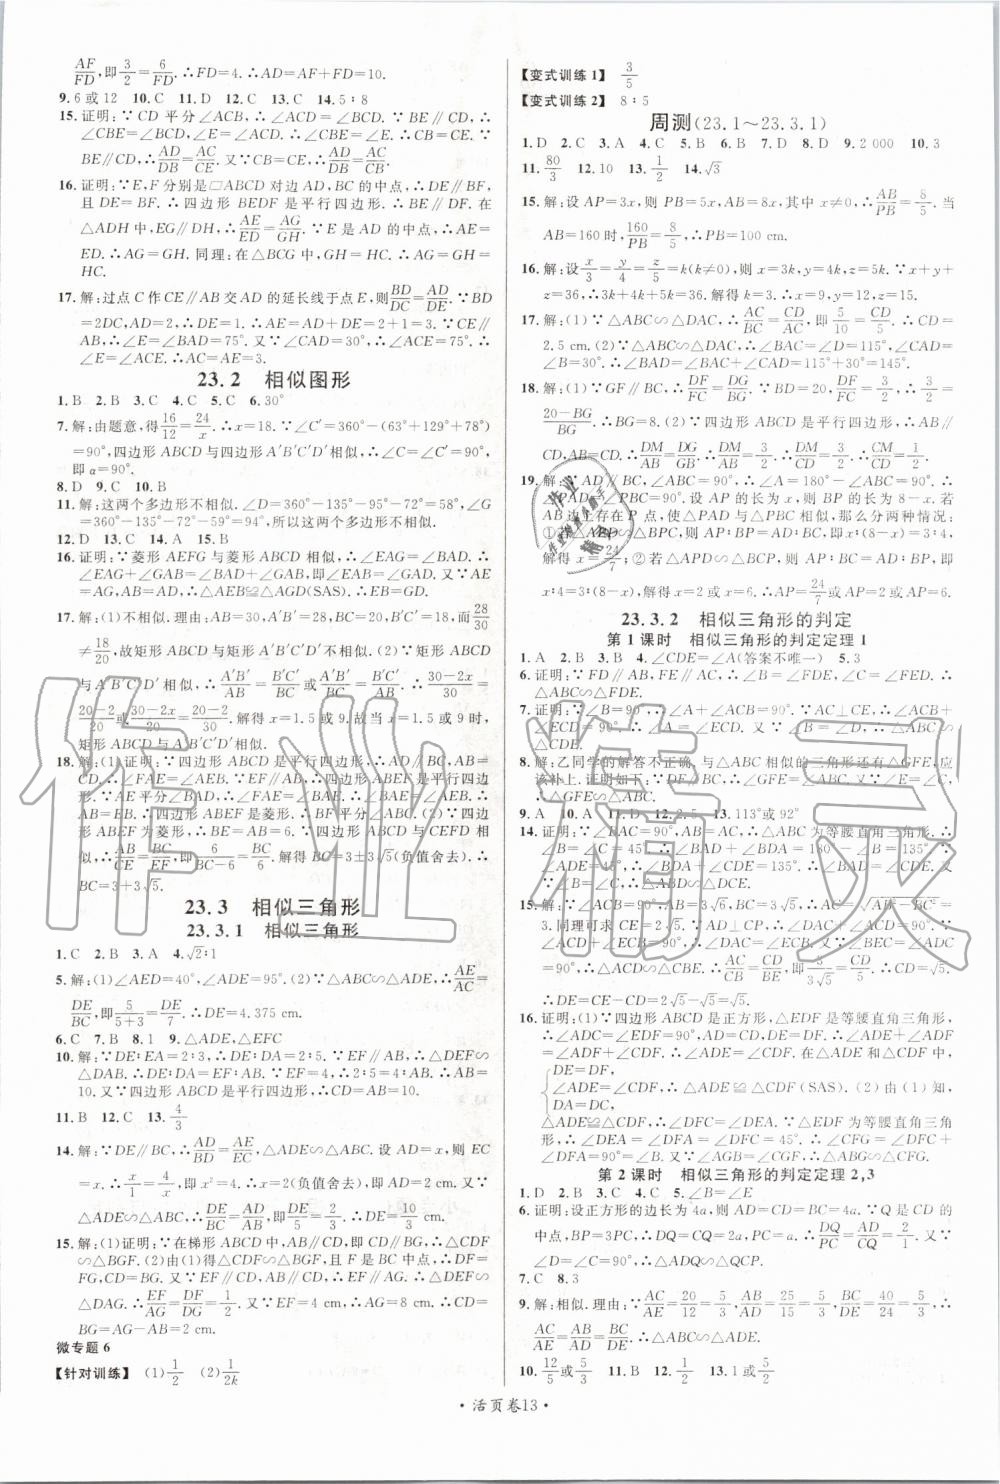 AF/FD,即3/2=6/FD.∴FD=4.∴AD=AF+FD=10.
9.6或12 10.C 11.D 12.C 13.C 14.5∶8
15.证明:∵CD平分∠ACB,∴∠ACD=∠BCD.∵BE∥CD,∴
∠CBE=∠BCD,∠CEB=∠ACD.∴∠CBE=∠CEB.∴BC=CE.∵
BE∥CD,∴AD/DB=AC/CE.又∵CB=CE,∴AD/DB=AC/CB.
16.证明:∵E,F分别是□ABCD对边AD,BC的中点,∴DE∥BF,
且DE=BF.∴四边形BEDF是平行四边形.∴BE∥DF.在
△ADH中,EG∥DH,∴AE/ED=AG/GH.∵E是AD的中点,∴AE=
ED.∴AG=GH.同理:在△BCG中,GH=HC.∴AG=GH=
HC.
17.解:过点C作CE∥AB交AD的延长线于点E,则BD/DC=AD/DE.∵BD
=2DC,∴AD=2DE.∴DE=1.∴AE=AD+DE=2+1=3.∵CE∥
AB,∴∠E=∠BAD=75°.又∵∠CAD=30°,∴∠ACE=75°.∴∠E
=∠ACE.∴AC=AE=3.
23.2 相似图形
1.B 2.B 3.C 4.C 5.C 6.30°
7.解:由题意,得16/12=24/x.∴x=18.∵∠C′=360°-(63°+129°+78°)
=90°,四边形ABCD与四边形A′B′C′D′相似,∴∠C=∠C′=90°,
即α=90°.
8.D 9.C 10.B
11.解:这两个多边形不相似.∠D=360°-135°-95°-72°=58°,∠G
=360°-135°-95°-59°=94°,所以这两个多边形不相似.
12.D 13.C 14.A 15.B
16.证明:∵菱形AEFG与菱形ABCD相似,∴∠EAG=∠BAD.
∴∠EAG+∠GAB=∠BAD+∠GAB,即∠EAB=∠GAD.又∵AE
=AG,AB=AD,∴△AEB≌△AGD(SAS).∴EB=GD.
17.解:(1)不相似.理由:AB=30,A′B′=28,BC=20,B′C′=18,而28/30
≠18/20,故矩形ABCD与矩形A′B′C′D′不相似.(2)∵矩形ABCD
与A′B′C′D′相似,∴A′B′/AB=B′C′/BC或A′B′/BC=B′C′/AB.∴30-2x/30=
20-2/20或30-2x/20=20-2/30.解得x=1.5或9.故当x=1.5或9时,
矩形ABCD与A′B′C′D′相似.
18.解:(1)证明:∵四边形ABCD是平行四边形,∴AD∥BC.
∴∠FAE=∠AEB.∵EF∥AB,∴四边形ABEF是平行四边
形.∵AE平分∠BAD,∴∠FAE=∠BAE.∴∠BAE=∠AEB.
∴AB=EB.∴四边形ABEF是菱形.(2)∵四边形
ABEF为菱形,∴BE=AB=6.∵四边形ABCD与CEFD相
似,∴AB/CE=BC/EF,即6/BC-6=BC/6.解得BC=3±3√5(负值舍去).∴
BC=3+3√5.
23.3 相似三角形
23.3.1 相似三角形
1.C 2.B 3.A 4.√2∶1
5.解:(1)∠AED=40°,∠ADE=95°.(2)∵△ABC∽△ADE,∴AE/AC=
DE/BC,即5/5+3=DE/7.∴DE=4.375 cm.
6.C 7.B 8.1 9.△ADE,△EFC
10.解:∵DE∶EA=2∶3,∴DE∶DA=2∶5.∵EF∥AB,∴△DEF∽
△DAB.∴DE∶DA=EF∶AB.∴4∶AB=2∶5.解得AB=
10.又∵四边形ABCD是平行四边形,∴CD=AB=10.
11.B 12.C 13.4/3
14.解:∵DE∥BC,∴AD/BD=AE/EC,△ADE∽△ABC.设AD=x,则EC
=x.∴x/1=4/x,即x²=4.∴x=2(负值舍去).∴AD=2.又∵
△ADE∽△ABC,∴DE/BC=AD/AB,即DE/5=2/2+1.∴DE=10/3 cm.
15.解:(1)证明:∵在梯形ABCD中,AB∥CD,∴△CDF
∽△BGF.(2)由(1)得△CDF∽△BGF,且F是BC中点,∴DF=
FG,CD=BG.又∵EF∥CD,AB∥CD,∴EF∥AG.∴△DEF∽
△DAG.∴EF/AG=DF/DG=1/2.又∵EF=4 cm,∴AG=8 cm.∴CD=
BG=AG-AB=2 cm.
微专题6
【针对训练】 (1)1/2 (2)1/2k
【变式训练1】 3/5
【变式训练2】 8∶5
周测(23.1~23.3.1)
1.D 2.C 3.A 4.C 5.B 6.B 7.D 8.D 9.2 000 10.3
11.80/3 12.10 13.1/2 14.√3
15.解:设AP=3x,则PB=5x,AB=8x,其中x≠0,∴AB/PB=8/5.当
AB=160时,160/PB=8/5,∴PB=100 cm.
16.解:设x/3=y/4=z/5=k(k≠0),则x=3k,y=4k,z=5k.∵x+y+
z=36,∴3k+4k+5k=36.解得k=3.∴x=9,y=12,z=15.
17.解:(1)∵△ABC∽△DAC,∴AC/BC=CD/AC,即5/10=CD/5.∴CD=
2.5 cm.(2)∵△ABC∽△DAC,∴∠BAC=∠ADC=115°,∠CAD=
∠B=35°.∴∠BAD=∠BAC+∠CAD=115°+30°=145°.
18.解:(1)∵GF∥BC,∴DF/FC=DG/BG.∵BD=20,DF/FC=3/2,∴3/2=
20-BG/BG.∴BG=8.(2)∵四边形ABCD是平行四边形,∴AB∥
CD.∴DM/AB=DG/BG.∴DM/AB=3/2.∴DM/CD=3/2.
19.解:∵AD∥BC,∠ABC=90°,∴∠A=180°-∠ABC=90°.∴
∠PAD=∠PBC=90°.设AP的长为x,则BP的长为8-x.若
AB边上存在P点,使△PAD与△PBC相似,那么分两种情况:
①若△APD∽△BPC,则AP∶BP=AD∶BC,即x∶(8-x)=3∶4,
解得x=24/7;②若△APD∽△BCP,则AP∶BC=AD∶BP,即
x∶4=3∶(8-x).解得x=2或x=6.∴AP=24/7或AP=2或AP=6.
23.3.2 相似三角形的判定
第1课时 相似三角形的判定定理1
1.A 2.B 3.B 4.∠CDE=∠A(答案不唯一) 5.3
6.证明:∵FD∥AB,FE∥AC,∴∠B=∠FDE,∠C=∠FED.∴
△ABC∽△FDE.
7.证明:∵∠B=90°,∴∠A+∠ACB=90°.∵AC⊥CE,∴∠ACB
+∠ECD=90°.∴∠A=∠ECD.又∵∠B=∠D=90°,∴
△ABC∽△CDE.
8.解:乙同学的解答不正确.与△ABC相似的三角形还有△GFE,应
该补上.证明如下:
9.A 10.A 11.D 12.2.5 13.113°或92°
14.证明:∵∠BAC=90°,AB=AC,∴△ABC为等腰直角三角形.∴∠B
=∠C=45°.∴∠BAD+∠BDA=135°.∵∠ADE=45°,
∴∠BDA+∠CDE=135°.∴∠BAD=∠CDE.∴△ABD∽
△DCE.
16.证明:(1)∵四边形ABCD是正方形,△EDF是等腰直角三角形,
∴∠ADC=∠EDF=90°,AD=CD,DE=DF.∴∠ADE+∠ADF
=∠ADF+∠CDF.∴∠ADE=∠CDF.在△ADE和△CDF中,
DE=DF,
∠ADE=∠CDF,∴△ADE≌△CDF(SAS).(2)由(1)知,
DA=DC,
△ADE≌△CDF,∴∠DFC=∠DEA.∵△EDF为等腰直角三角
形,∴∠DEA=∠DFG=45°.∴∠DFC=45°.∴∠CFG=∠DFG+∠DFC
=90°.∴∠B=∠CFG.又∵∠AGB=∠CGF,∴△ABG∽△CFG.
第2课时 相似三角形的判定定理2,3
1.D 2.A 3.C 4.C 5.∠B=∠E
6.证明:设正方形的边长为4a,则AD=CD=BC=4a.∵Q是CD的
中点,BP=3PC,∴DQ=CQ=2a,PC=a.∴DQ/PC=AD/CQ=2/1.又∵
∠D=∠C=90°,∴△ADQ∽△QCP.
7.C 8.3
9.解:相似.理由:∵AC/AE=20/12=5/3,AB/AD=25/15=5/3,BC/DE=40/24=5/3,∴
AC/AE=AB/AD=BC/DE.∴△ABC∽△ADE.
10.12/5或5/3 11.B 12.B 13.1或4
·活页卷13·
作业精灵